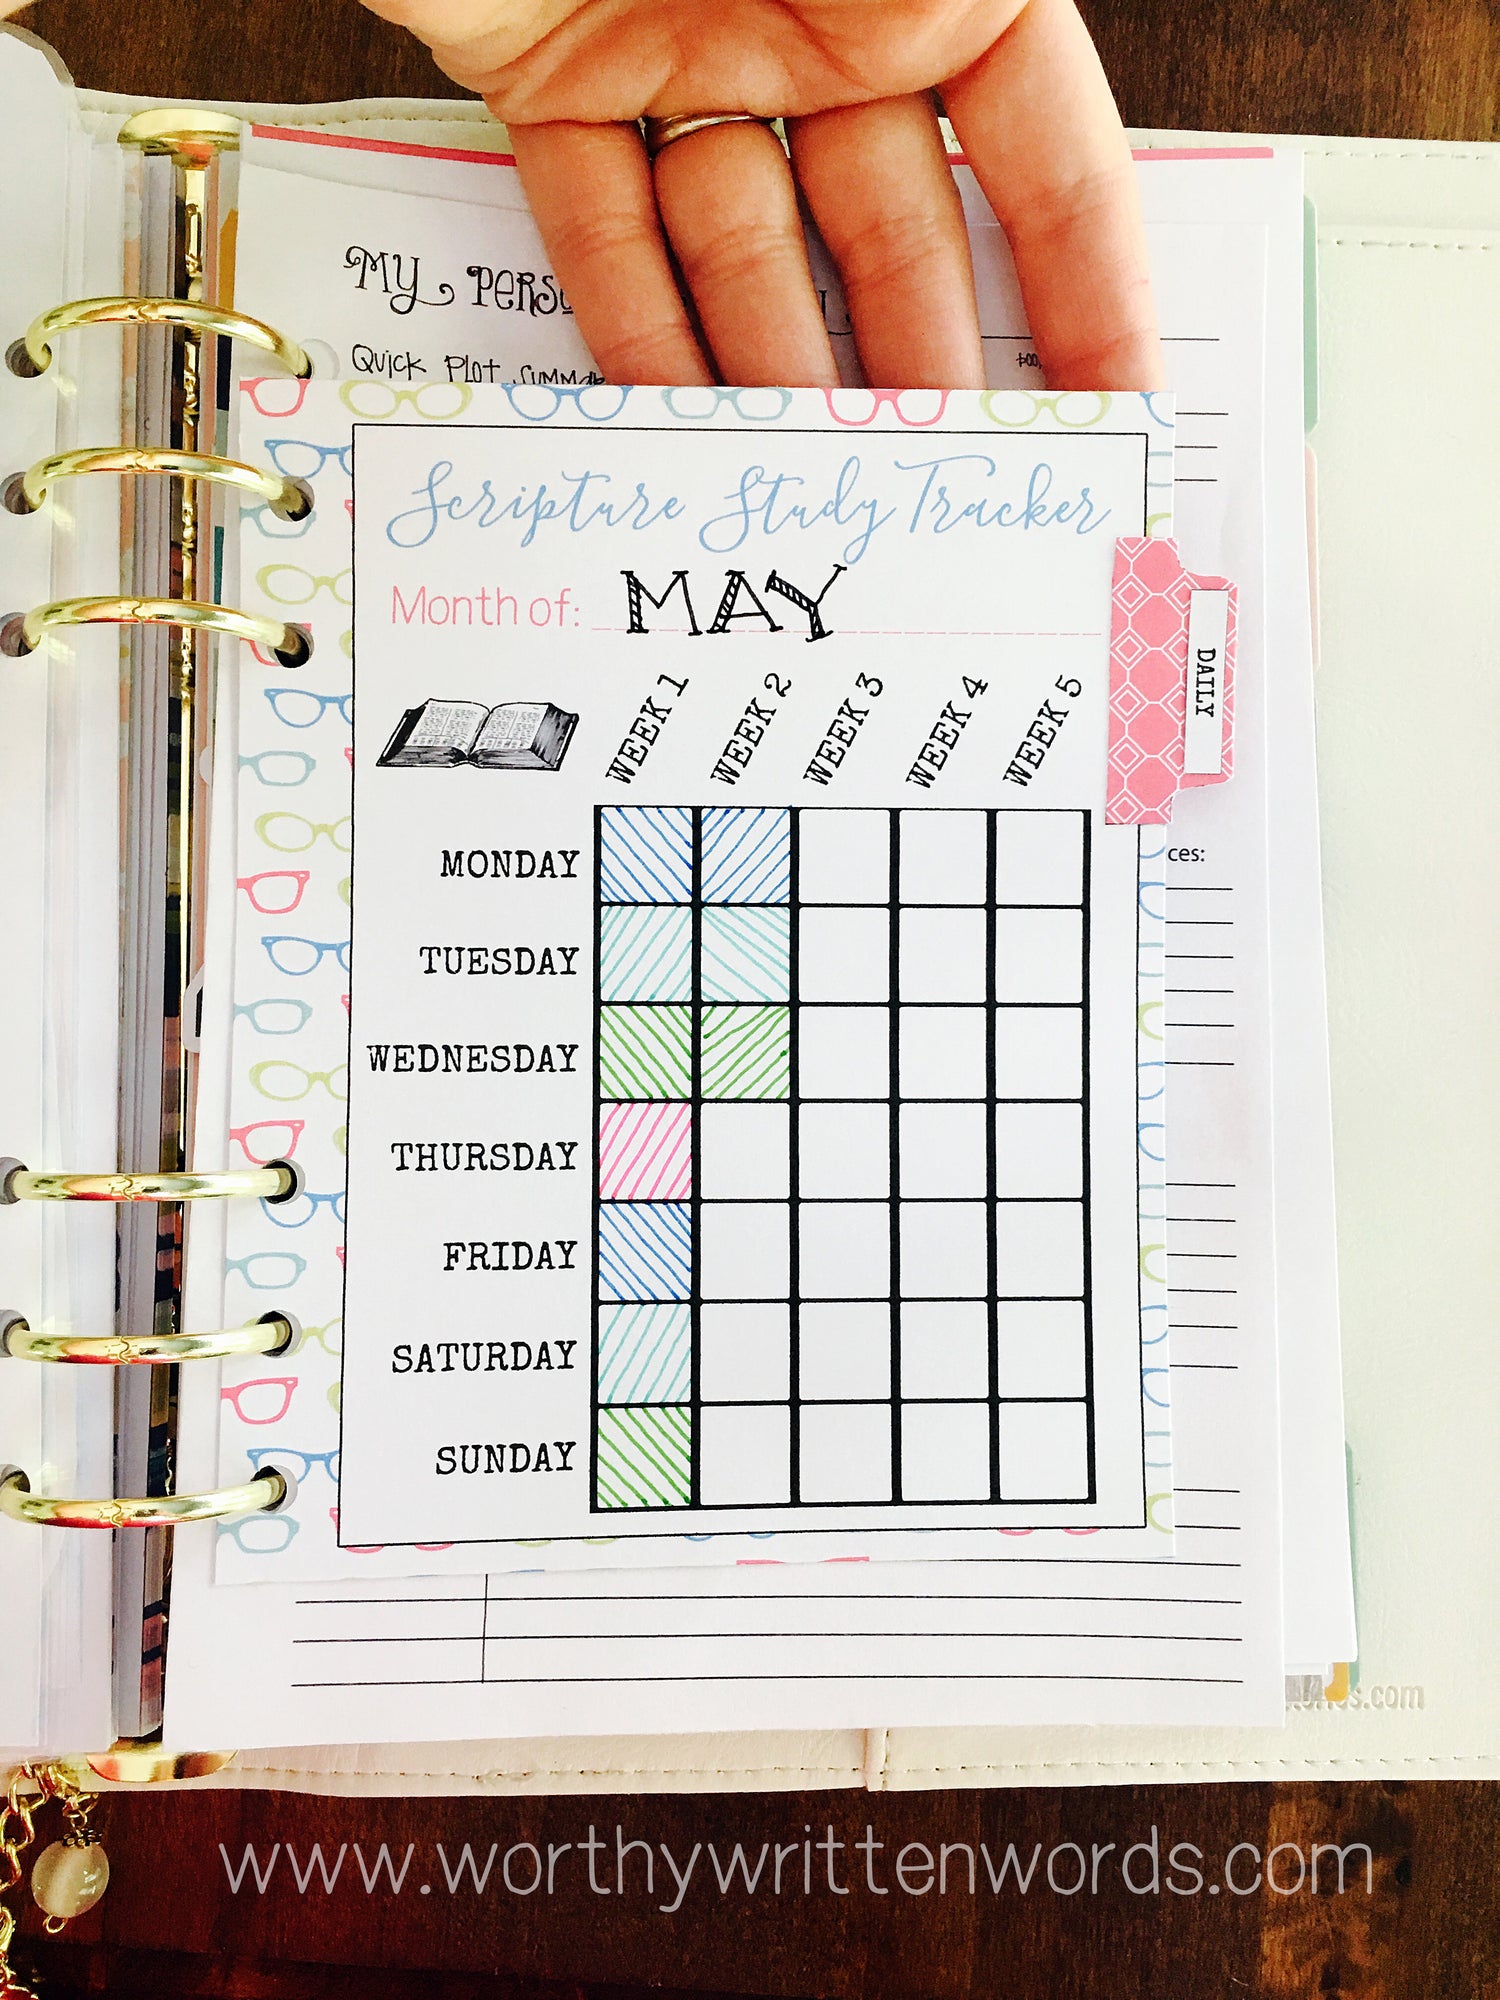 MY PERSO
QUICK PLOT SUMMAR
Scripture Study Tracker
Month of: MAY
WEEK 1 WEEK 2 WEEK 3 WEEK 4 WEEK 5
DAILY
MONDAY
ces:
TUESDAY
WEDNESDAY
THURSDAY
FRIDAY
SATURDAY
SUNDAY
www.worthywrittenwords.com